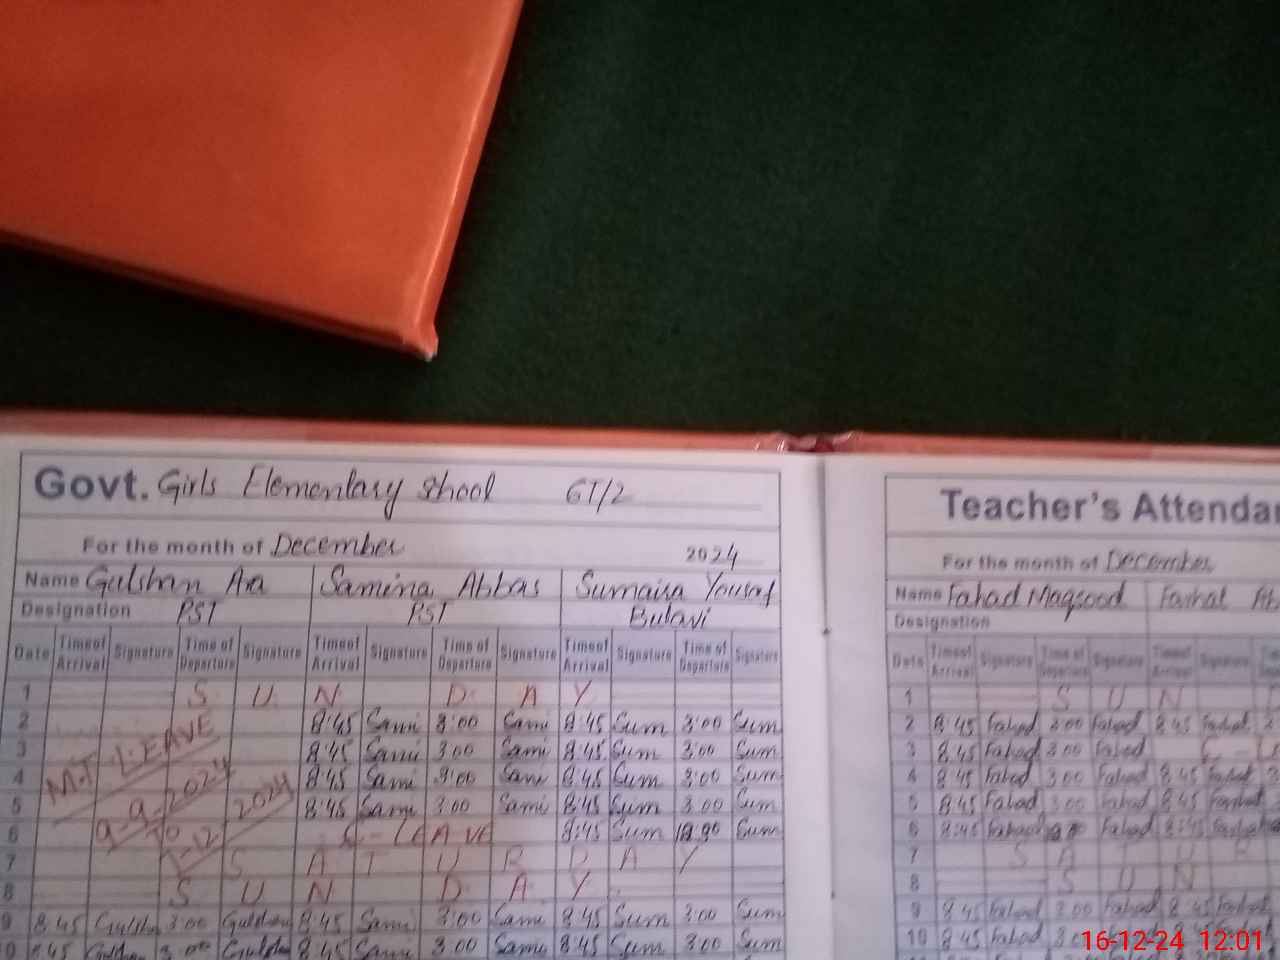 Govt. Girls Elementary School 6T/2
For the month of December 2024
Name Gulshan Ara Samina Abbas Sumaira Yousaf
Designation PST PST Bulavi
Date Time of Arrival Signature Time of Departure Signature Time of Arrival Signature Time of Departure Signature Time of Arrival Signature Time of Departure Signature
1 S U N D A Y
2 8:45 Sami 3:00 Sami 8:45 Sum 3:00 Sum
3 8:45 Sami 3:00 Sami 8:45 Sum 3:00 Sum
4 8:45 Sami 3:00 Sami 8:45 Sum 3:00 Sum
5 8:45 Sami 3:00 Sami 8:45 Sum 3:00 Sum
6 C-LEAVE 8:45 Sum Sum
M.T LEAVE
9-9-2024
TO
2024
7 S A T U R D A Y
8 S U N D A Y
9 8:45 Gulshan 3:00 Gulshan 8:45 Sami 3:00 Sami 8:45 Sum 3:00 Sum
10 8:45 Gulshan 3:00 Gulshan 8:45 Sami 3:00 Sami 8:45 Sum 3:00 Sum
Teacher's Attendan
For the month of December
Name Fahad Maqsood Farhat Ab
Designation
Date Time of Arrival Signature Time of Departure Signature Time of Arrival Signature
1 S U N
2 8:45 Fahad 3:00 Fahad 8:45 Farhat
3 8:45 Fahad 3:00 Fahad
4 8:45 Fahad 3:00 Fahad 8:45 Farhat
5 8:45 Fahad 3:00 Fahad 8:45 Farhat
6 8:45 Fahad Fahad 8:45 Farhat
7 S A T U R
8 S U N
9 8:45 Fahad 3:00 Fahad 8:45 Farhat
10 8:45 Fahad 3:00 Fahad 8:45 Farhat
16-12-24 12:01